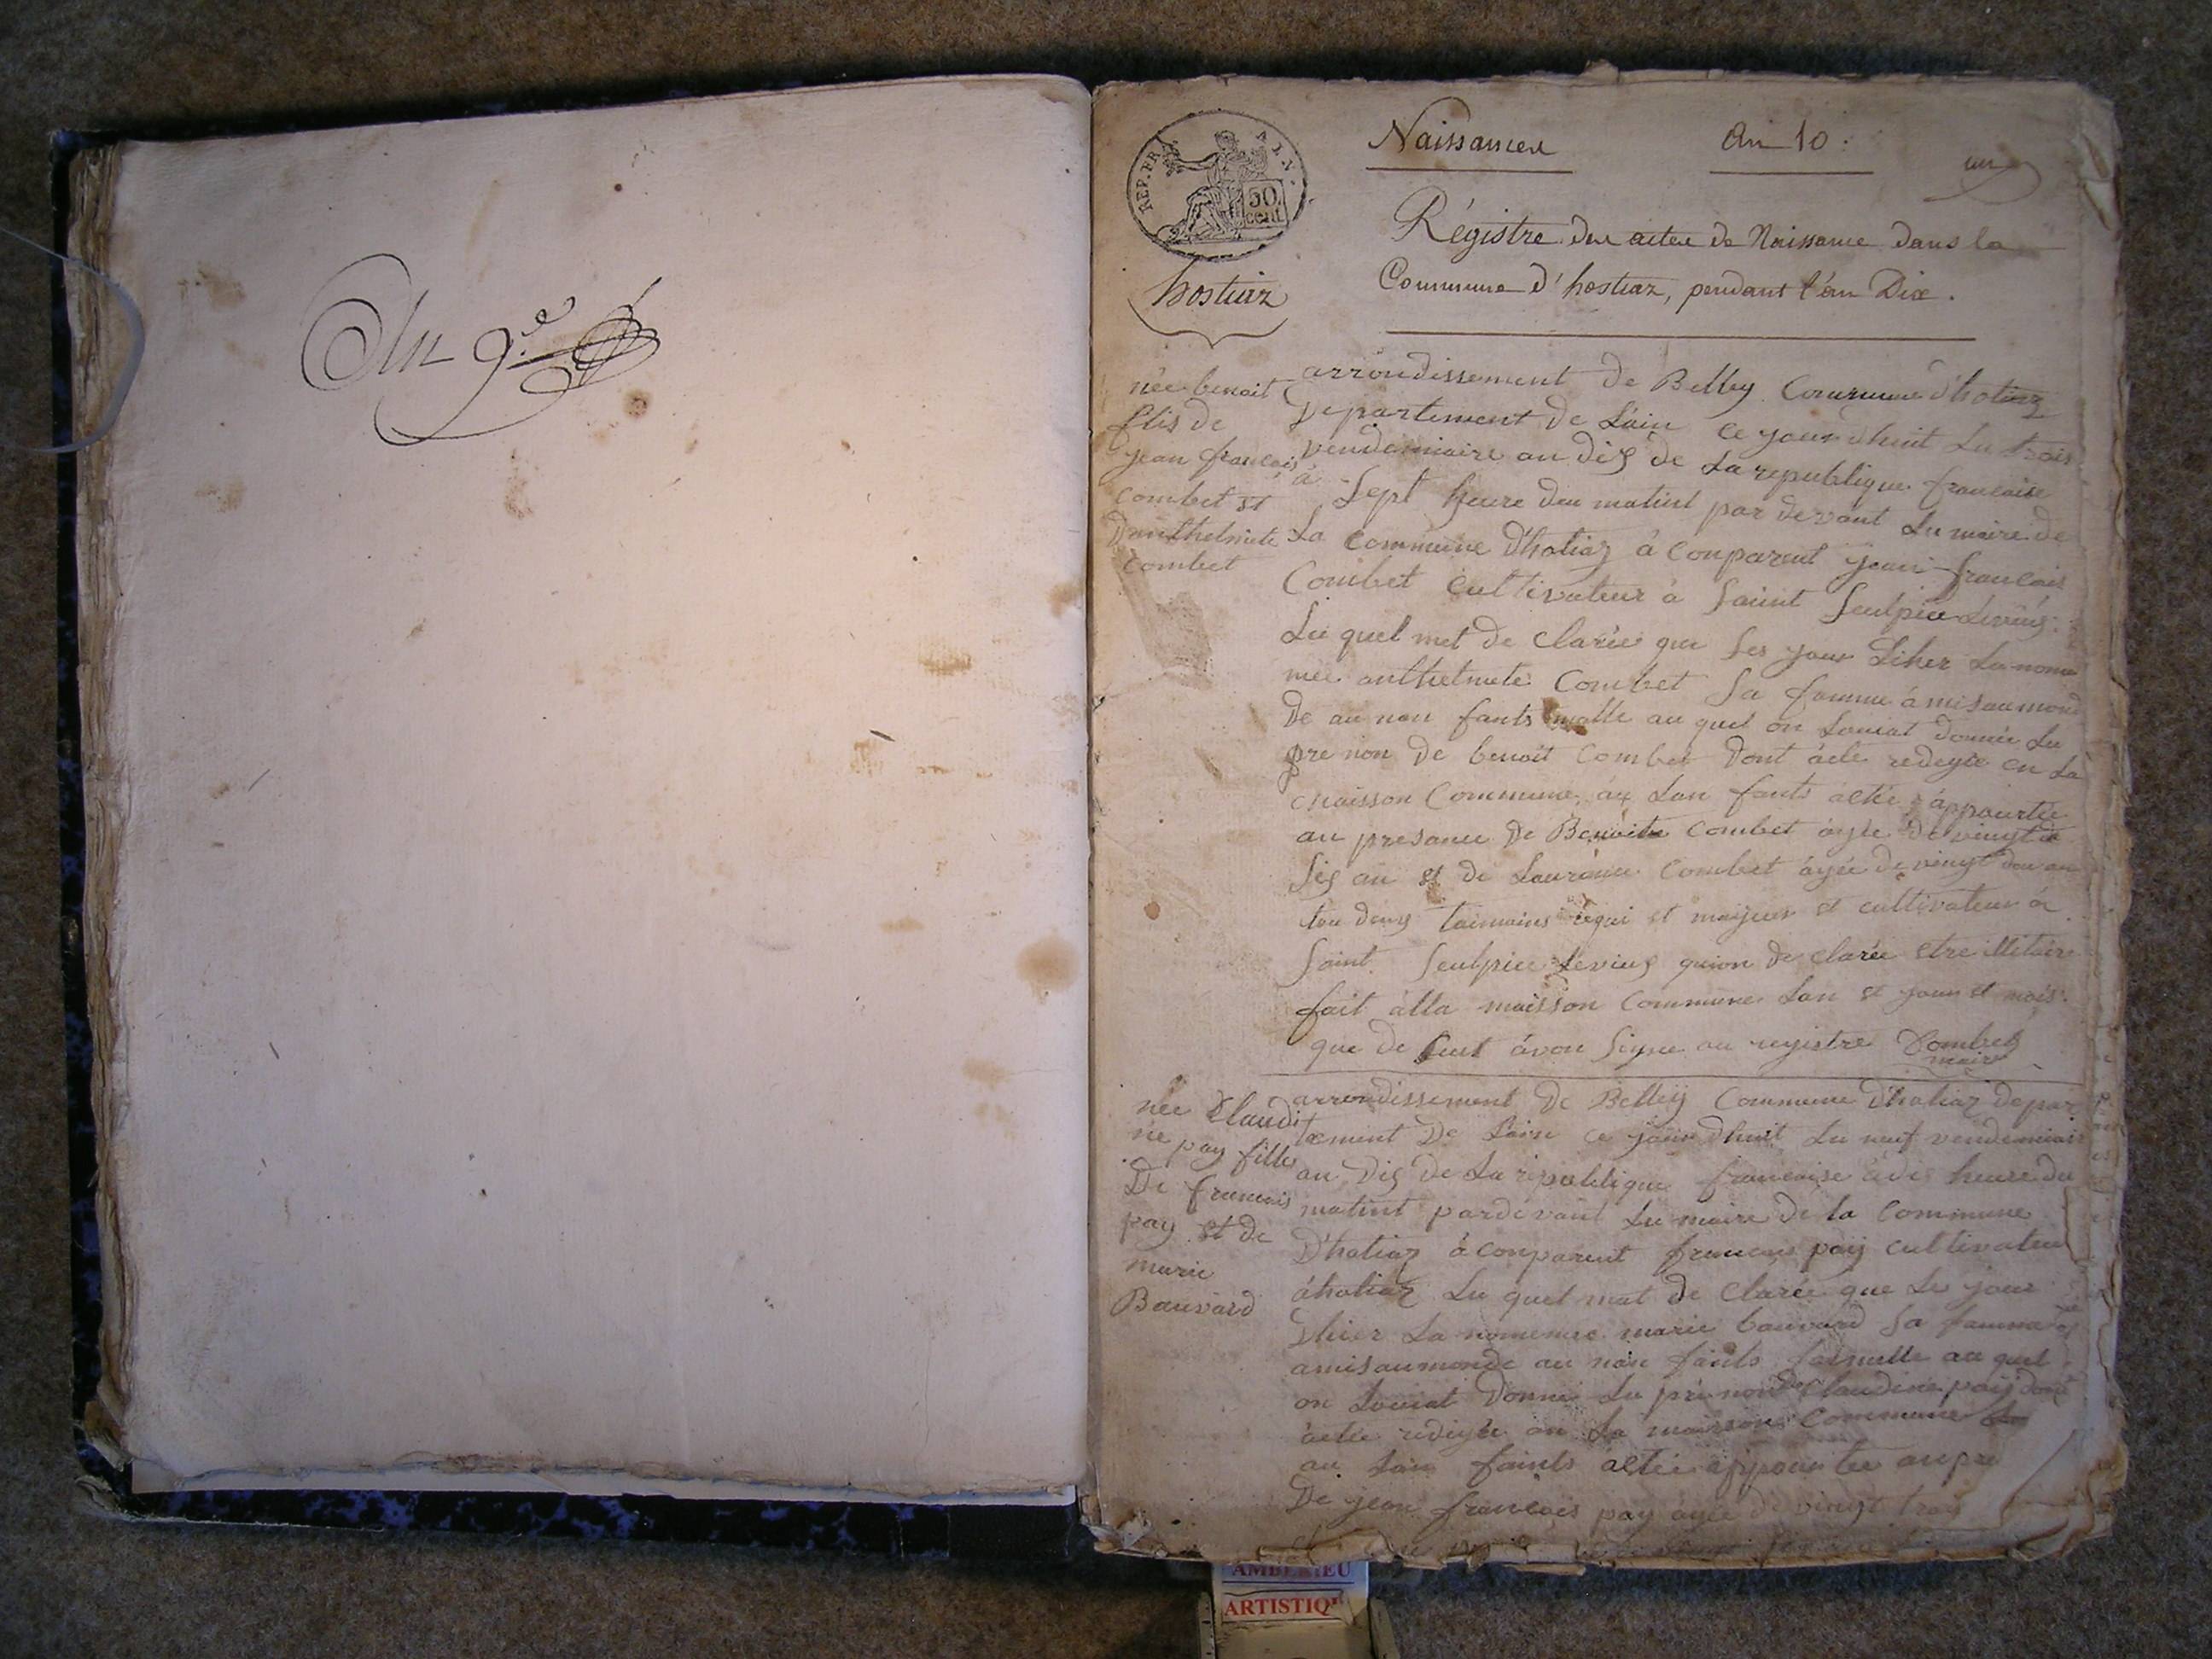 An 9.e
REP. FRA.
50
cent.
Naissances
An 10.
un
hostiaz
Régistre des actes de Naissance dans la
Commune d'hostiaz, pendant l'an Dix.
née benoit
fils de
jean francois
combet et
Danthelmete
combet
arrondissement de Belley Commune d'hotiaz
Departement de Lain ce jour dhuit Lu trois
vendemiaire an dis de La republique francaise
à Sept heure deu matint par devant Lu maire de
La commune d'hotiaz à conparent jean francois
Combet Cultivateur à Saint Seulpice Levius
Lu quel met de clarée que Les jour Diher La nome
mée anthelmete Combet Sa famme à mis au mon
De au non fants malle au quel on Louiat donnée Lu
pre non De benoit Combet Dont àcte redegée en La
maisson Commune, au Lan fants aetée appourtée
au presance De Benoite Combet àgée De vingt
Sis an et de Laurence Combet àgée De vingt dou an
tou deus taimains et majeur et cultivateur à
Saint Seulpice Levius quion de clarée etre illitair
fait àlla maisson Commune Lan et jour et mois
que de Sus àvon Signe au registre Combet
maire
née Claudi
ne pay fille
De francois
pay et de
marie
Bauvard
arrondissement De Belley Commune D'hotiaz depar
tement De Lain ce jour dhuit Lu neuf vendemiair
an Dis De La republique francaise à dis heure du
matint pardevant Lu maire De la Commune
D'hotiaz àconparent francois pay cultivateu
àhotiaz Lu quel mat de Clarée que Le jour
Dhier La nomemee marie bauvard Sa famme
amis au monde au non fants faimelle au quel
on Louiat Donné Lu pre non De Claudine pay dont
àctée redigée an La maisson Commune
au Lan faints aetée appourtee aupre
De jean francois pay àgée de vingt troy
AMBERIEU
ARTISTIQ